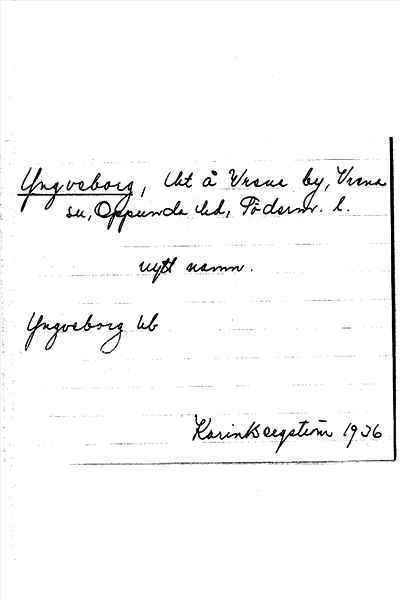 Yngveborg, lht å Vrena by, Vrena
sn, Oppunda hd, Söderm. l.
nytt namn.
Yngveborg hb
Karin Bergström 1936